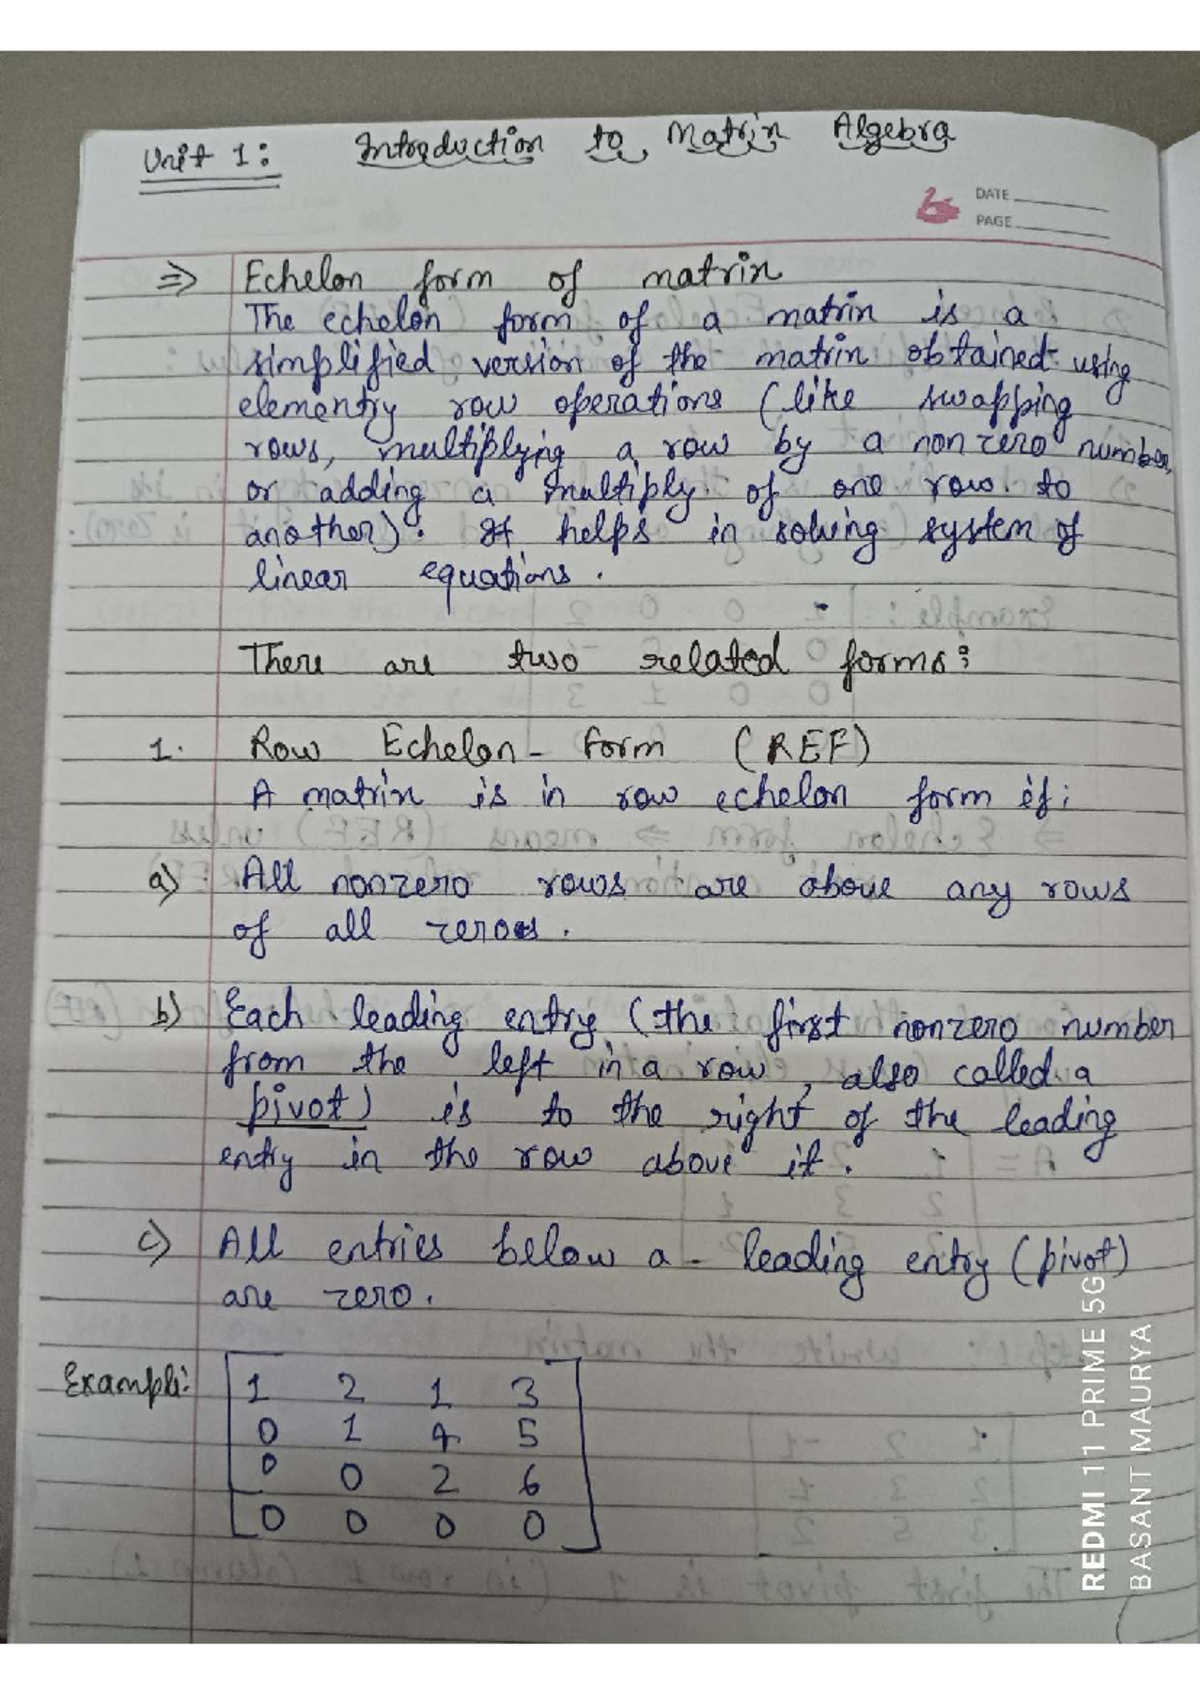 Unit 1: Introduction to Matrix Algebra
DATE
PAGE
⇒ Echelon form of matrix
The echelon form of a matrix is a
simplified version of the matrix obtained using
elementry row operations (like swapping
rows, multiplying a row by a nonzero number,
or adding a multiply of one row to
another). It helps in solving system of
linear equations.
There are two related forms:
1. Row Echelon - Form (REF)
A matrix is in row echelon form if:
a) All nonzero rows are above any rows
of all zeroes.
b) Each leading entry (the first nonzero number
from the left in a row, also called a
pivot) is to the right of the leading
entry in the row above it.
c) All entries below a - leading entry (pivot)
are zero.
Example:
1 2 1 3
0 1 4 5
0 0 2 6
0 0 0 0
REDMI 11 PRIME 5G
BASANT MAURYA